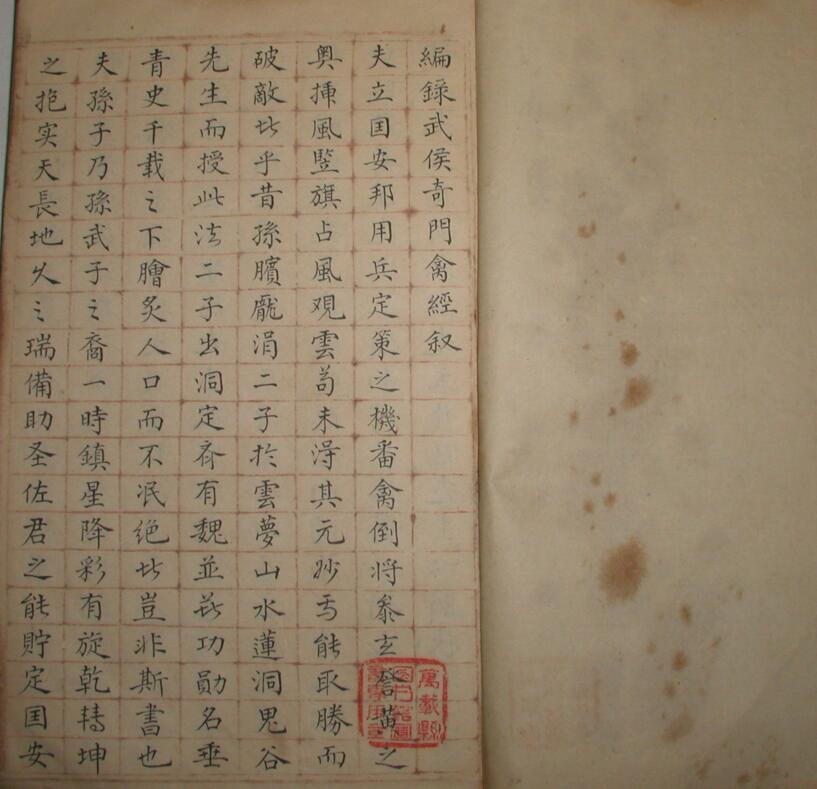 編錄武侯奇門禽經叙
夫立国安邦用兵定策之機番禽倒将叅玄之
奥揷風竪旗占風观雲茍未淂其元妙焉能取勝而
破敵此乎昔孫臏龎涓二子扵雲夢山水蓮洞鬼谷
先生而授此法二子出洞定斉有魏並㳟功勛名垂
青史千载之下膾炙人口而不泯绝此豈非斯書也
夫孫子乃孫武子之裔一時鎮星降彩有旋乾轉坤
之抱实天長地久之瑞備助圣佐君之能貯定国安
萬載縣